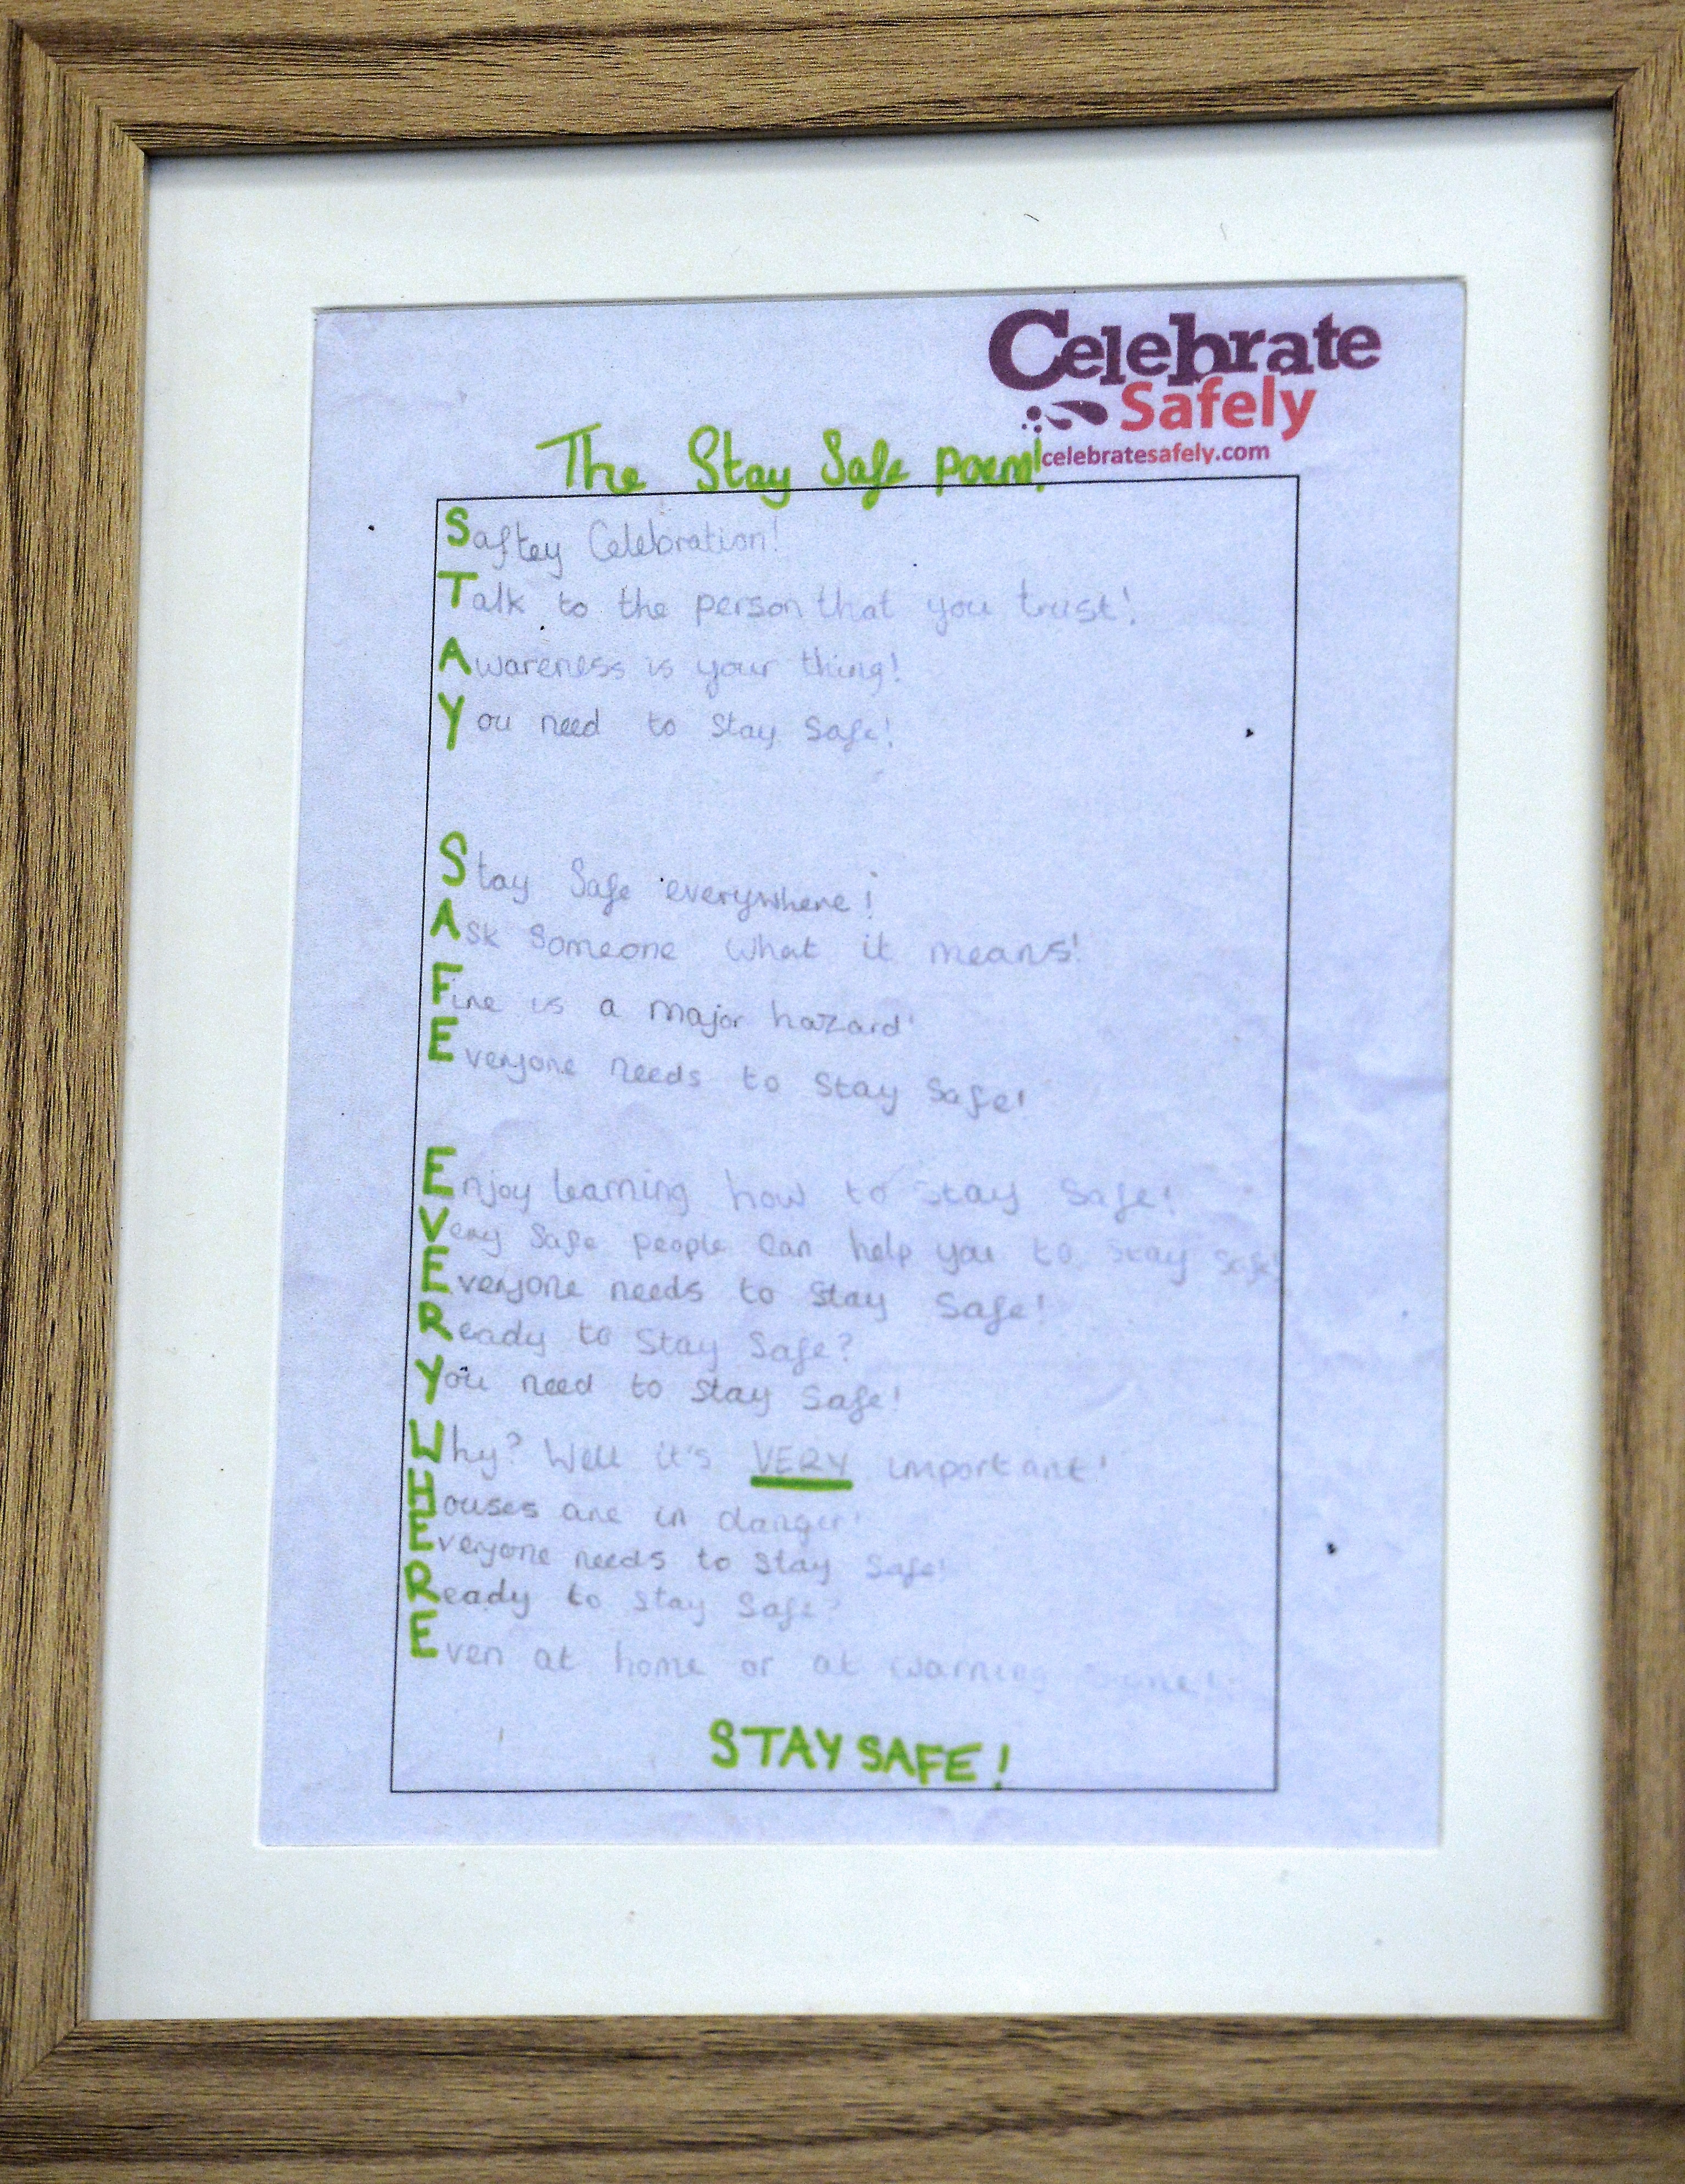 Celebrate
Safely
celebratesafely.com
The Stay Safe Poem!
Saftey Celebration!
Talk to the person that you trust!
Awareness is your thing!
You need to stay safe!
Stay Safe everywhere!
Ask Someone what it means!
Fire is a major hazard!
Everyone needs to stay safe!
Enjoy learning how to stay safe!
Very safe people can help you to stay safe!
Everyone needs to stay safe!
Ready to stay safe?
You need to stay safe!
Why? Well it's VERY important!
Houses are in danger!
Everyone needs to stay safe!
Ready to stay safe?
Even at home or at warning
STAY SAFE!